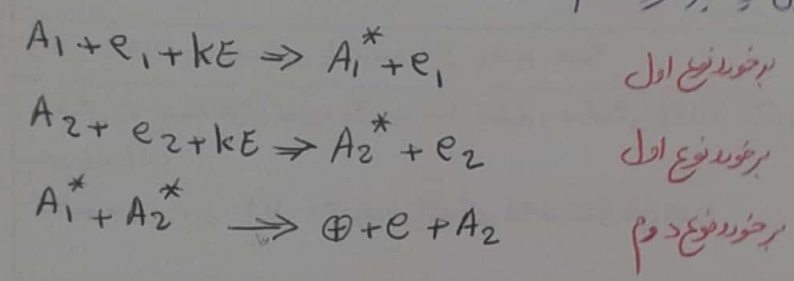 A₁ + e₁ + kE ⇒ A₁* + e₁ برخورد نوع اول
A₂ + e₂ + kE ⇒ A₂* + e₂ برخورد نوع اول
A₁* + A₂* → ⊕ + e + A₂ برخورد نوع دوم